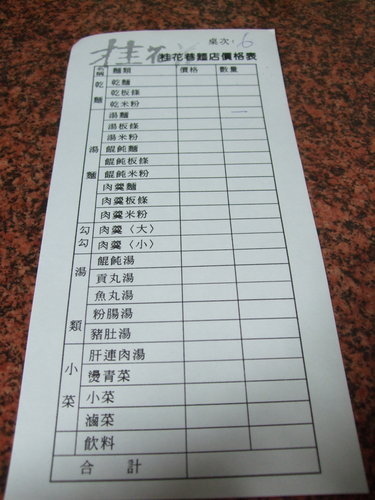 桂花
桌次: 6
桂花巷麵店價格表
麵類 價格 數量
乾麵
乾麵
乾板條
乾米粉
湯麵
湯麵 一
湯板條
湯米粉
餛飩麵
餛飩板條
餛飩米粉
肉羹麵
肉羹板條
肉羹米粉
勾勾
肉羹〈大〉
肉羹〈小〉
湯類
餛飩湯
貢丸湯
魚丸湯
粉腸湯
豬肚湯
肝連肉湯
小菜
燙青菜
小菜
滷菜
飲料
合計